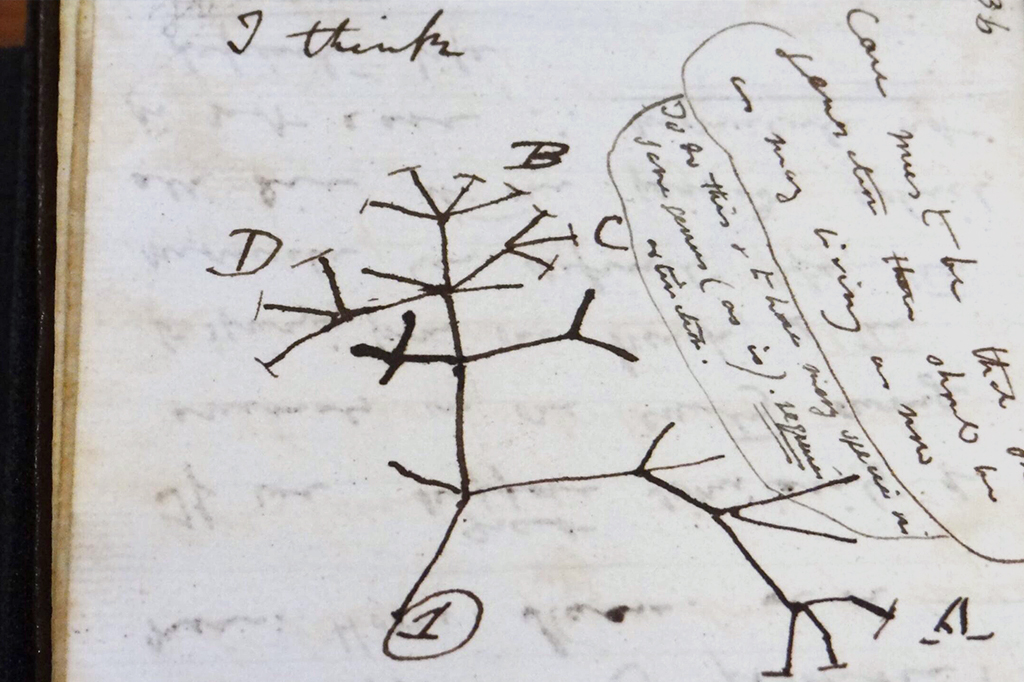 I think
36
Case must be that
generation then should be
as many living as now
To do this & to have many species in
same genus (as is). requires
extinction.
B
C
D
A
1